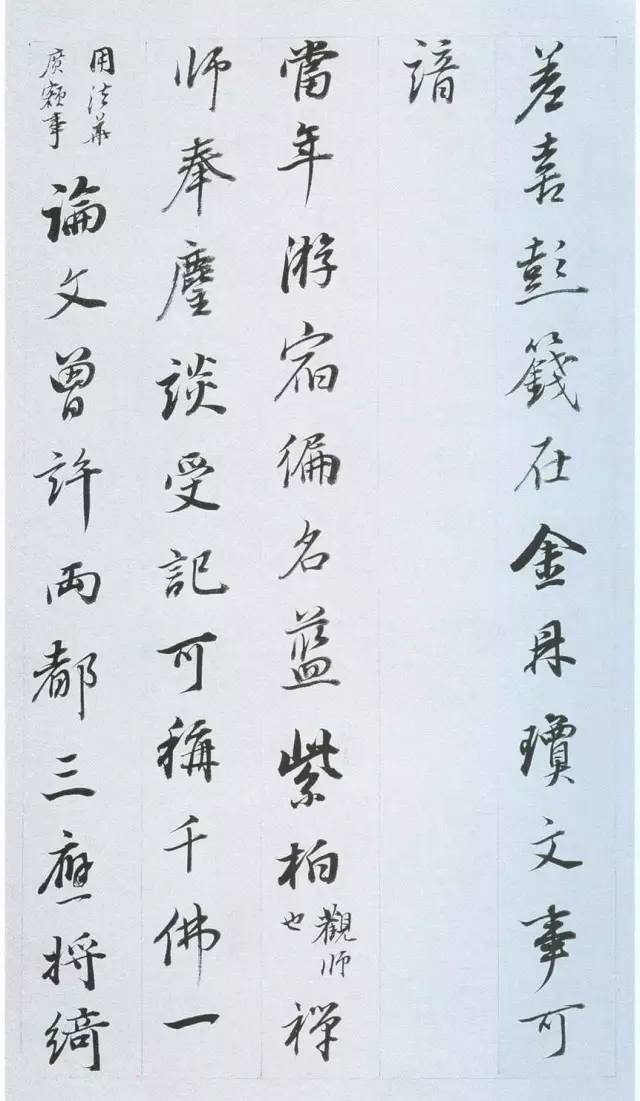 差喜彭籛在金丹瓊文事可
諳
當年游宿徧名藍紫柏觀師也禪
師奉麈談受記可稱千佛一
用法華廣額事論文曾許兩都三應將綺